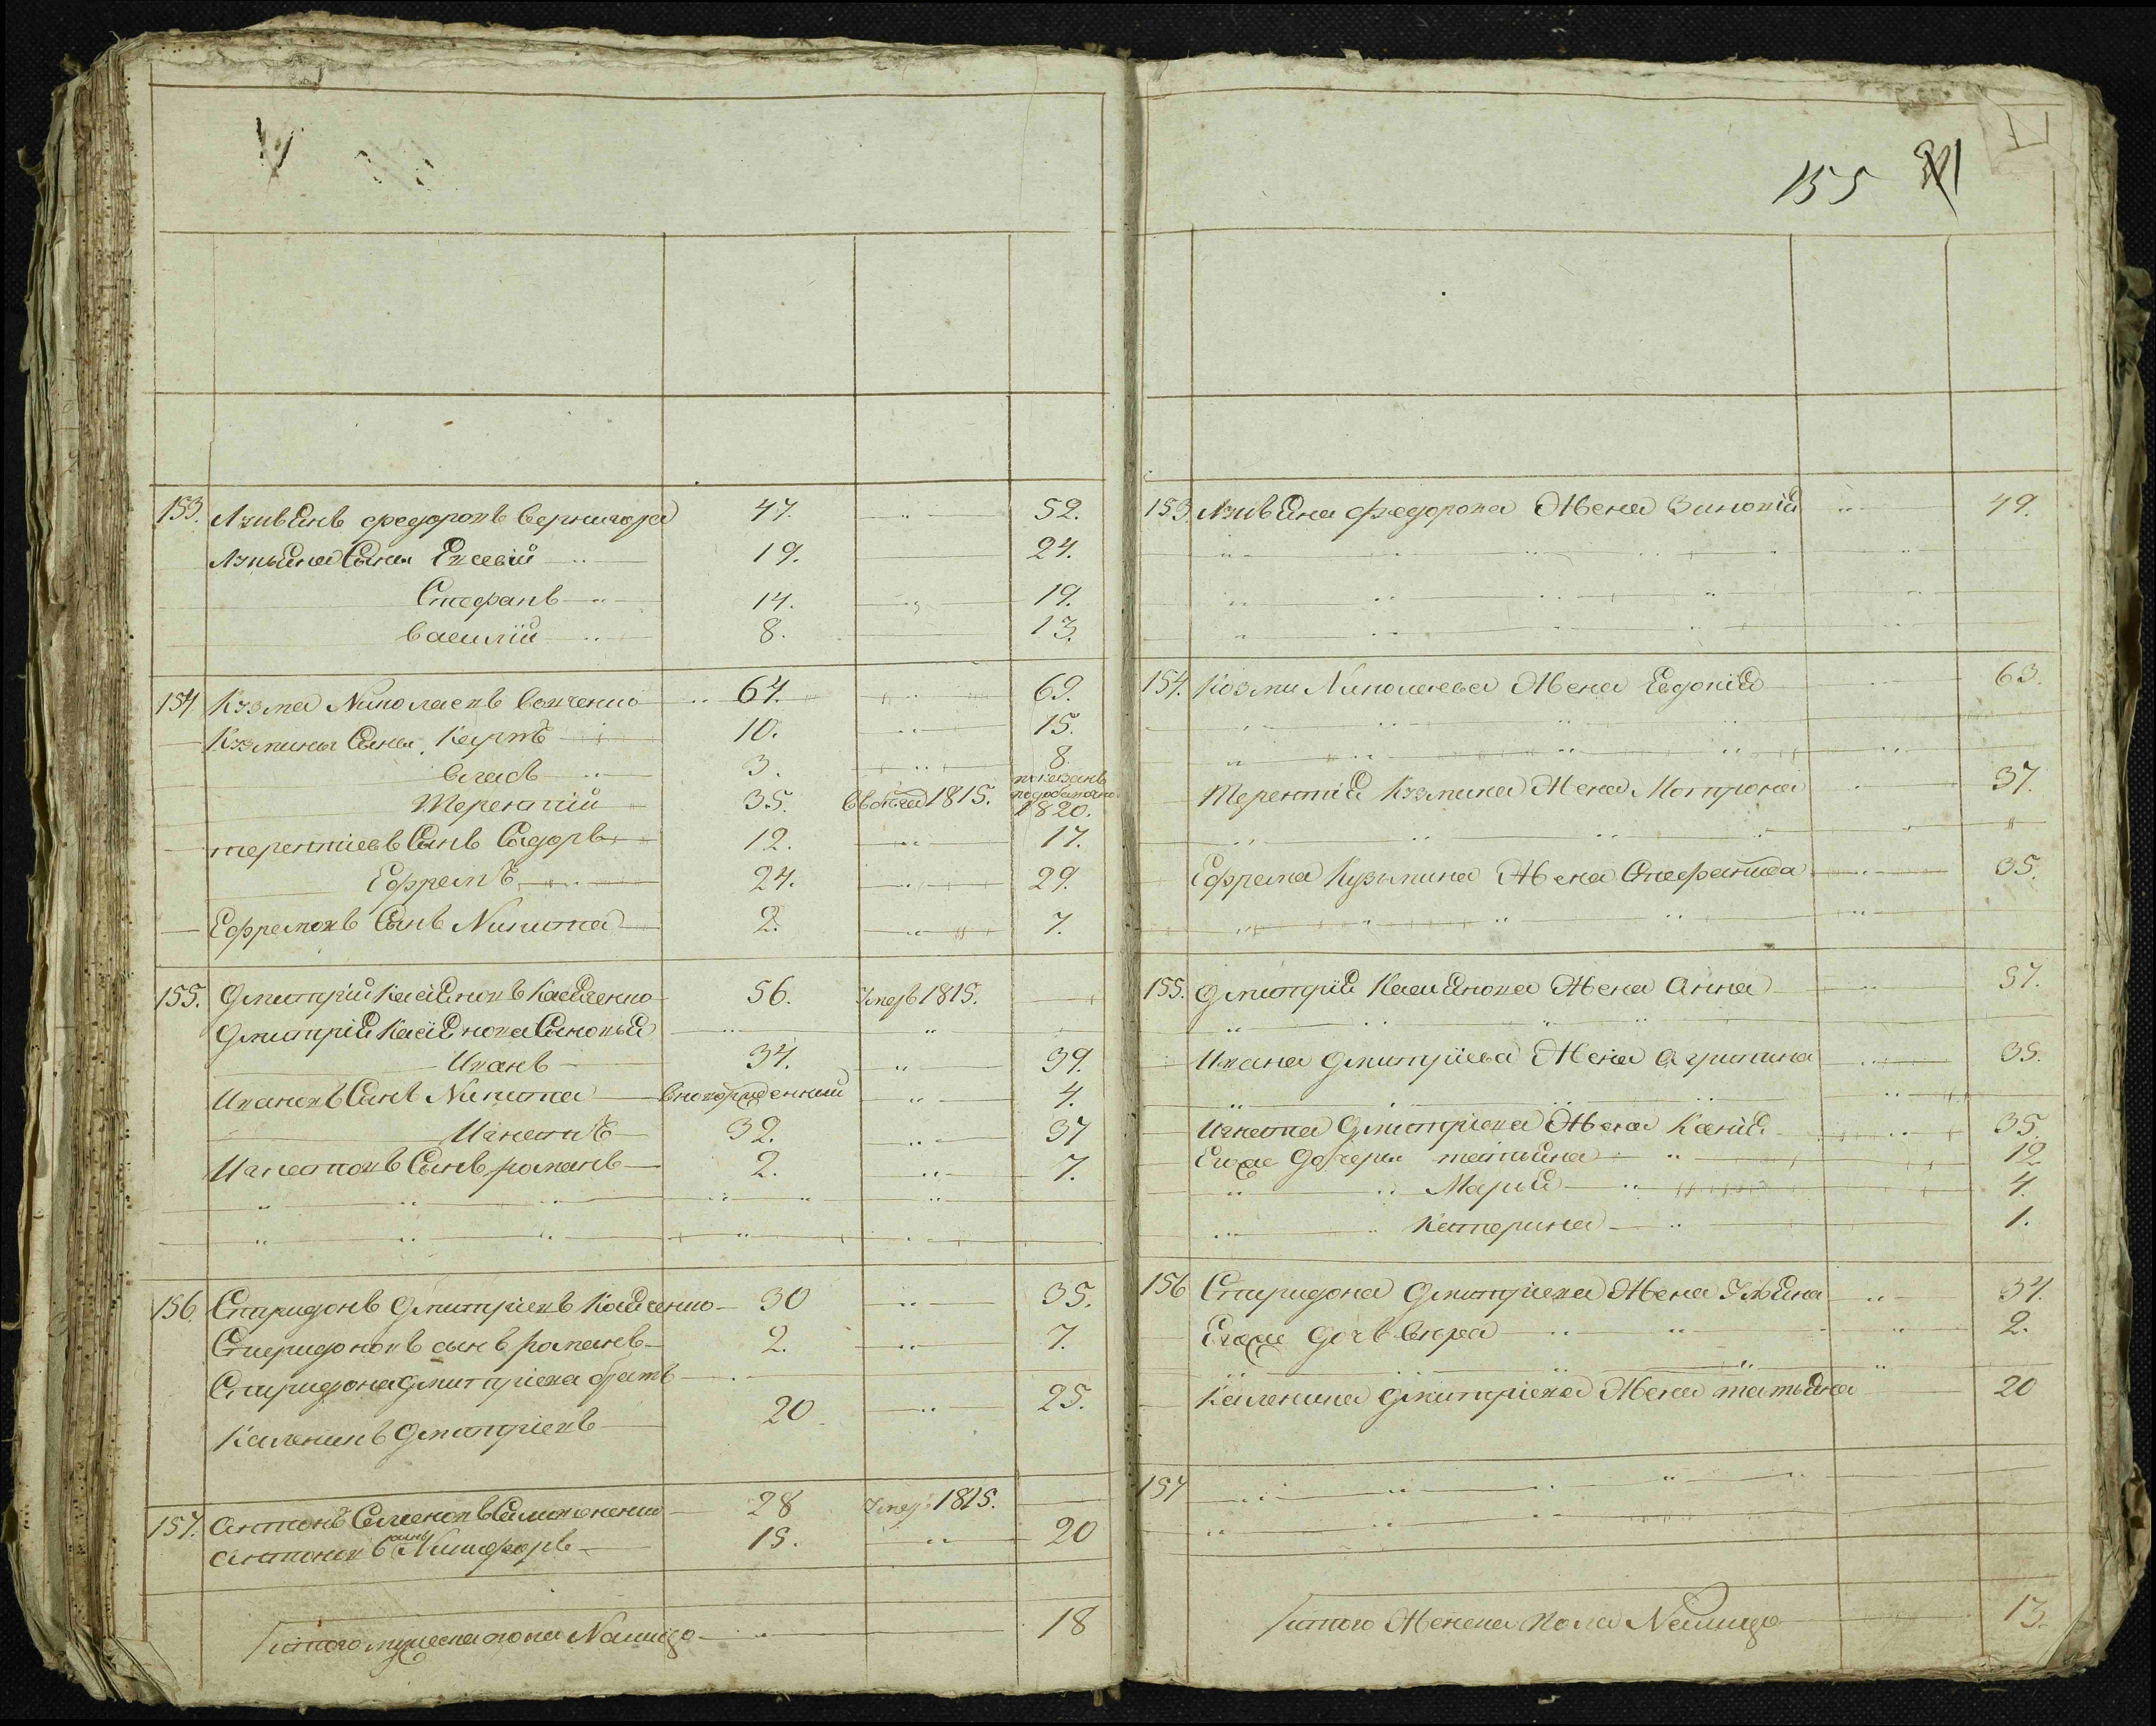 155
153. Лукьянъ Федоровъ Вернигора 47. 52.
Лукьяна Сыны Евсевій 19. 24.
Стефанъ 14. 19.
Василій 8. 13.
154 Кузма Николаевъ Вовченко 64. 69.
Кузмины Сыны Карпъ 10. 15.
Власъ 3. 8.
Терентій 35. 1815. 1820.
терентіевъ Сынъ Сидоръ 12. 17.
Ефремъ 24. 29.
Ефремовъ Сынъ Никита 2. 7.
155. Дмитрій Касіяновъ Касяченко 56. Умеръ 1815.
Дмитрія Касіянова Сыновья
Иванъ 34. 39.
Ивановъ Сынъ Никита вноворожденный 4.
Игнатъ 32. 37
Игнатовъ Сынъ романъ 2. 7.
156. Спиридонъ Дмитріевъ Касяченко 30 35.
Спиридоновъ сынъ романъ 2. 7.
Спиридона Дмитріева братъ
Каленикъ Дмитріевъ 20. 25.
157. Антонъ Семеновъ Симоненко 28 Умеръ 1815.
Антоновъ сынъ Никифоръ 15. 20
Итого мужеска пола Налицо 18
153. Лукьяна Федорова Жена Зиновія 49.
154. Козми Николаева Жена Евдокія 63.
Терентія Кузмина Жена Мотрона 37.
Ефрема Кузьмина Жена Стефанида 35.
155. Дмитрія Касіянова Жена Анна 57.
Ивана Дмитріева Жена Агрипина 35.
Игната Дмитріева Жена Ксенія 35.
Егоже Дочери татьяна 12
Марія 4.
Катерина 1.
156 Спиридона Дмитріева Жена Ульяна 34.
Егоже Дочь Вѣра 2.
Каленика Дмитріева Жена татьяна 20
157
Итого Женска Пола Налицо 13.